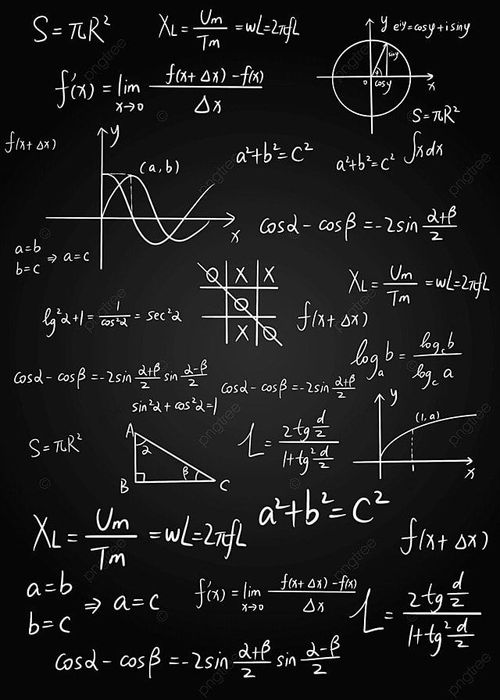 S = πR²
X_L = Um/Tm = wL = 2πfL
y e^iy = cosy + i siny
f'(x) = lim x→0 f(x + Δx) - f(x) / Δx
o cosy x
S = πR²
f(x + Δx)
y
(a, b)
x
a² + b² = c²
a² + b² = c²
∫xdx
a=b
b=c ⇒ a=c
cosα - cosβ = -2sin α+β/2
O X X
O
X O
X_L = Um/Tm = wL = 2πfL
lg²α + 1 = 1/cos²α = sec²α
f(x + Δx)
log_a b = log_c b / log_c a
cosα - cosβ = -2sin α+β/2 sin α-β/2
cosα - cosβ = -2sin α+β/2
sin²α + cos²α = 1
y
(1, a)
x
S = πR²
A
α
B
β
C
L = 2tg d/2 / 1+tg² d/2
a² + b² = c²
X_L = Um/Tm = wL = 2πfL
f(x + Δx)
a=b
b=c ⇒ a=c
f'(x) = lim x→0 f(x + Δx) - f(x) / Δx
L = 2tg d/2 / 1+tg² d/2
cosα - cosβ = -2sin α+β/2 sin α-β/2